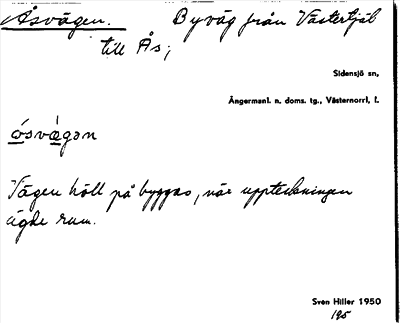 Åsvägen. Byväg från Västertjäl
till Ås;
Sidensjö sn,
Ångermanl. n. doms. tg., Västernorrl, l.
ósvä̀gən
Vägen höll på byggas, när uppteckningen
ägde rum.
Sven Hiller 1950
195